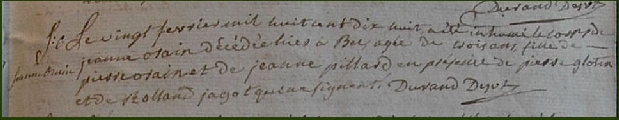 Durand Desvt
S:e Le vingt fevrier mil huit cent dix huit a été inhumé le corps de
jeanne orain jeanne orain décédée hier à Be, agée de trois ans, fille de
pierre orain et de jeanne pillard en présence de pierre glotin
et de Rolland jagot qui ne signent. Durand Desvt